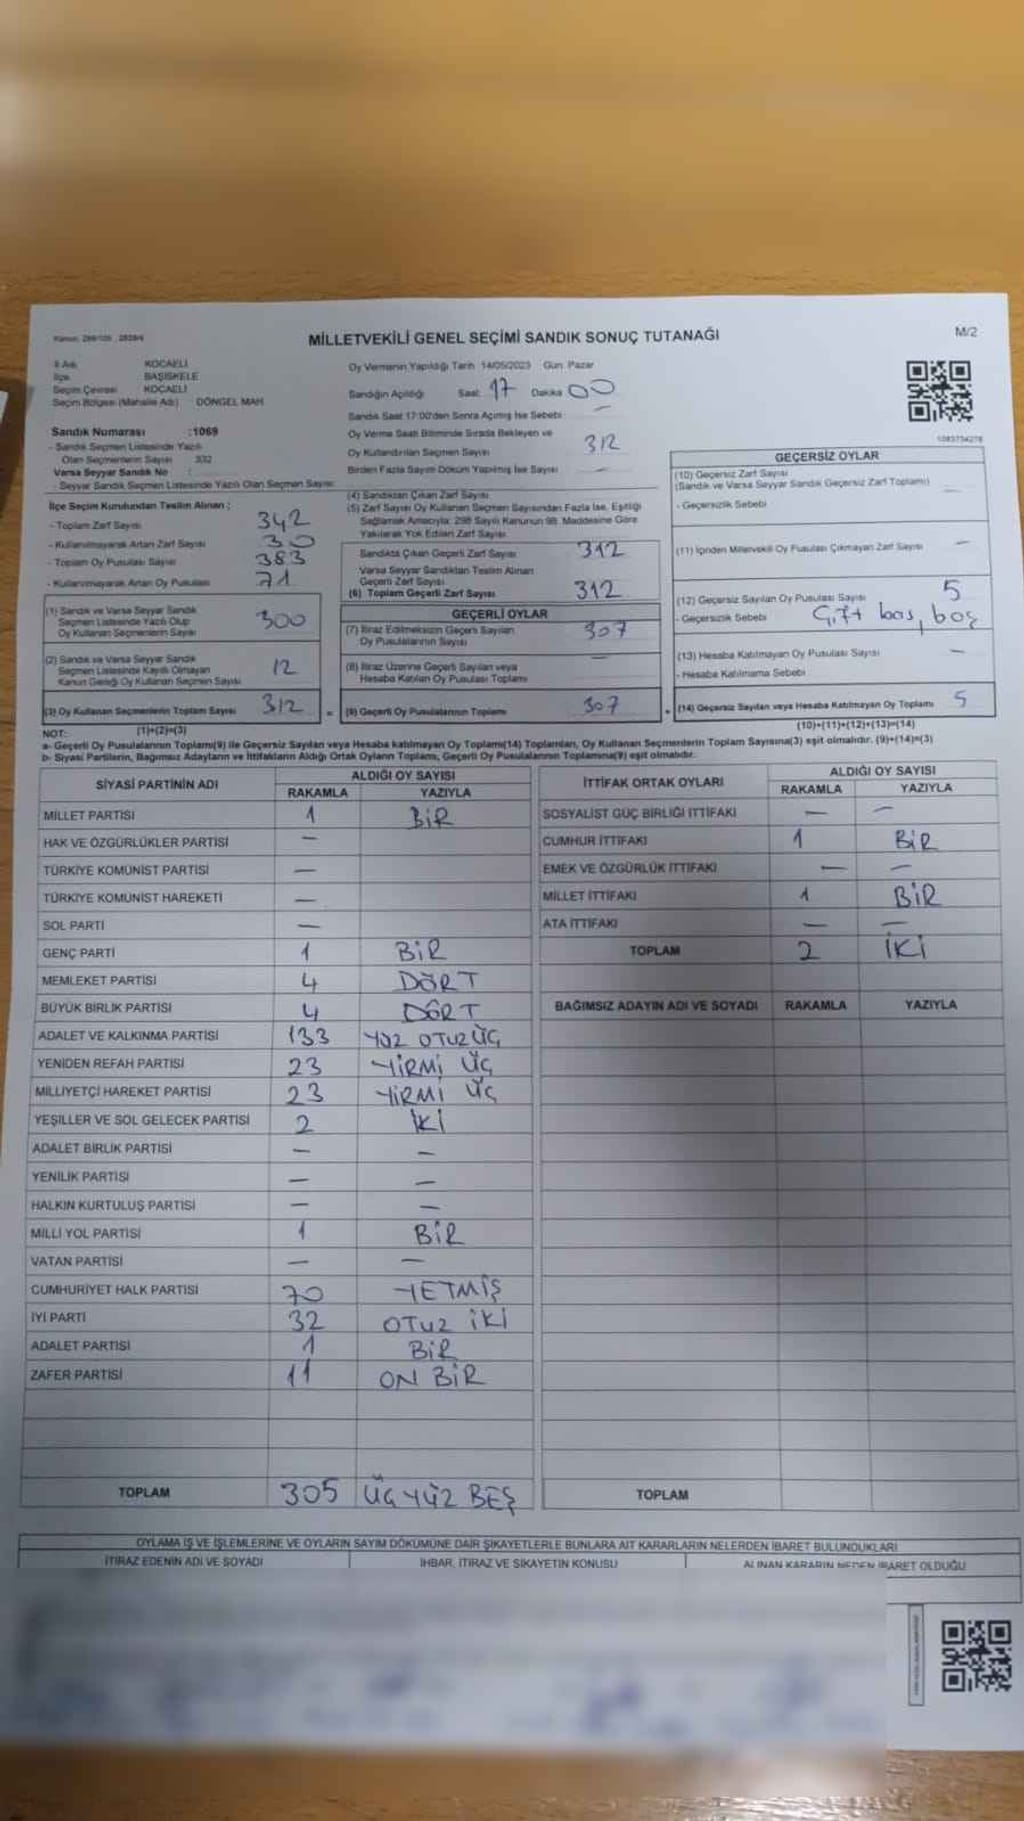 Kanun: 298/105 2839/4
MİLLETVEKİLİ GENEL SEÇİMİ SANDIK SONUÇ TUTANAĞI
M/2
İl Adı KOCAELİ
İlçe BAŞİSKELE
Seçim Çevresi KOCAELİ
Seçim Bölgesi (Mahalle Adı) DÖNGEL MAH.
Sandık Numarası :1069
- Sandık Seçmen Listesinde Yazılı
Olan Seçmenlerin Sayısı 332
Varsa Seyyar Sandık No :
- Seyyar Sandık Seçmen Listesinde Yazılı Olan Seçmen Sayısı
Oy Vermenin Yapıldığı Tarih 14/05/2023 Gün Pazar
Sandığın Açıldığı Saat 17 Dakika 00
Sandık Saat 17:00'den Sonra Açılmış İse Sebebi –
Oy Verme Saati Bitiminde Sırada Bekleyen ve
Oy Kullandırılan Seçmen Sayısı 312
Birden Fazla Sayım Döküm Yapılmış İse Sayısı –
İlçe Seçim Kurulundan Teslim Alınan ;
- Toplam Zarf Sayısı 342
- Kullanılmayarak Artan Zarf Sayısı 30
- Toplam Oy Pusulası Sayısı 383
- Kullanılmayarak Artan Oy Pusulası 71
(1) Sandık ve Varsa Seyyar Sandık
Seçmen Listesinde Yazılı Olup
Oy Kullanan Seçmenlerin Sayısı 300
(2) Sandık ve Varsa Seyyar Sandık
Seçmen Listesinde Kayıtlı Olmayan
Kanun Gereği Oy Kullanan Seçmen Sayısı 12
(3) Oy Kullanan Seçmenlerin Toplam Sayısı 312
(1)+(2)=(3)
(4) Sandıktan Çıkan Zarf Sayısı
(5) Zarf Sayısı Oy Kullanan Seçmen Sayısından Fazla İse, Eşitliği
Sağlamak Amacıyla; 298 Sayılı Kanunun 98. Maddesine Göre
Yakılarak Yok Edilen Zarf Sayısı
Sandıkta Çıkan Geçerli Zarf Sayısı 312
Varsa Seyyar Sandıktan Teslim Alınan
Geçerli Zarf Sayısı
(6) Toplam Geçerli Zarf Sayısı 312
GEÇERLİ OYLAR
(7) İtiraz Edilmeksizin Geçerli Sayılan
Oy Pusulalarının Sayısı 307
(8) İtiraz Üzerine Geçerli Sayılan veya
Hesaba Katılan Oy Pusulası Toplamı –
= (9) Geçerli Oy Pusulalarının Toplamı 307
1083734278
GEÇERSİZ OYLAR
(10) Geçersiz Zarf Sayısı
(Sandık ve Varsa Seyyar Sandık Geçersiz Zarf Toplamı) –
- Geçersizlik Sebebi
(11) İçinden Milletvekili Oy Pusulası Çıkmayan Zarf Sayısı –
(12) Geçersiz Sayılan Oy Pusulası Sayısı 5
- Geçersizlik Sebebi boş
(13) Hesaba Katılmayan Oy Pusulası Sayısı –
- Hesaba Katılmama Sebebi
+ (14) Geçersiz Sayılan veya Hesaba Katılmayan Oy Toplamı 5
(10)+(11)+(12)+(13)=(14)
NOT:
a- Geçerli Oy Pusulalarının Toplamı(9) ile Geçersiz Sayılan veya Hesaba katılmayan Oy Toplamı(14) Toplamları, Oy Kullanan Seçmenlerin Toplam Sayısına(3) eşit olmalıdır. (9)+(14)=(3)
b- Siyasi Partilerin, Bağımsız Adayların ve İttifakların Aldığı Ortak Oyların Toplamı, Geçerli Oy Pusulalarının Toplamına(9) eşit olmalıdır.
SİYASİ PARTİNİN ADI ALDIĞI OY SAYISI
RAKAMLA YAZIYLA
MİLLET PARTİSİ 1 BİR
HAK VE ÖZGÜRLÜKLER PARTİSİ –
TÜRKİYE KOMÜNİST PARTİSİ –
TÜRKİYE KOMÜNİST HAREKETİ –
SOL PARTİ –
GENÇ PARTİ 1 BİR
MEMLEKET PARTİSİ 4 DÖRT
BÜYÜK BİRLİK PARTİSİ 4 DÖRT
ADALET VE KALKINMA PARTİSİ 133 YÜZ OTUZ ÜÇ
YENİDEN REFAH PARTİSİ 23 YİRMİ ÜÇ
MİLLİYETÇİ HAREKET PARTİSİ 23 YİRMİ ÜÇ
YEŞİLLER VE SOL GELECEK PARTİSİ 2 İKİ
ADALET BİRLİK PARTİSİ – –
YENİLİK PARTİSİ – –
HALKIN KURTULUŞ PARTİSİ – –
MİLLİ YOL PARTİSİ 1 BİR
VATAN PARTİSİ – –
CUMHURİYET HALK PARTİSİ 70 YETMİŞ
İYİ PARTİ 32 OTUZ İKİ
ADALET PARTİSİ 1 BİR
ZAFER PARTİSİ 11 ON BİR
TOPLAM 305 ÜÇ YÜZ BEŞ
İTTİFAK ORTAK OYLARI ALDIĞI OY SAYISI
RAKAMLA YAZIYLA
SOSYALİST GÜÇ BİRLİĞİ İTTİFAKI – –
CUMHUR İTTİFAKI 1 BİR
EMEK VE ÖZGÜRLÜK İTTİFAKI – –
MİLLET İTTİFAKI 1 BİR
ATA İTTİFAKI – –
TOPLAM 2 İKİ
BAĞIMSIZ ADAYIN ADI VE SOYADI RAKAMLA YAZIYLA
TOPLAM
OYLAMA İŞ VE İŞLEMLERİNE VE OYLARIN SAYIM DÖKÜMÜNE DAİR ŞİKAYETLERLE BUNLARA AİT KARARLARIN NELERDEN İBARET BULUNDUKLARI
İTİRAZ EDENİN ADI VE SOYADI İHBAR, İTİRAZ VE ŞİKAYETİN KONUSU ALINAN KARARIN NEDEN İBARET OLDUĞU